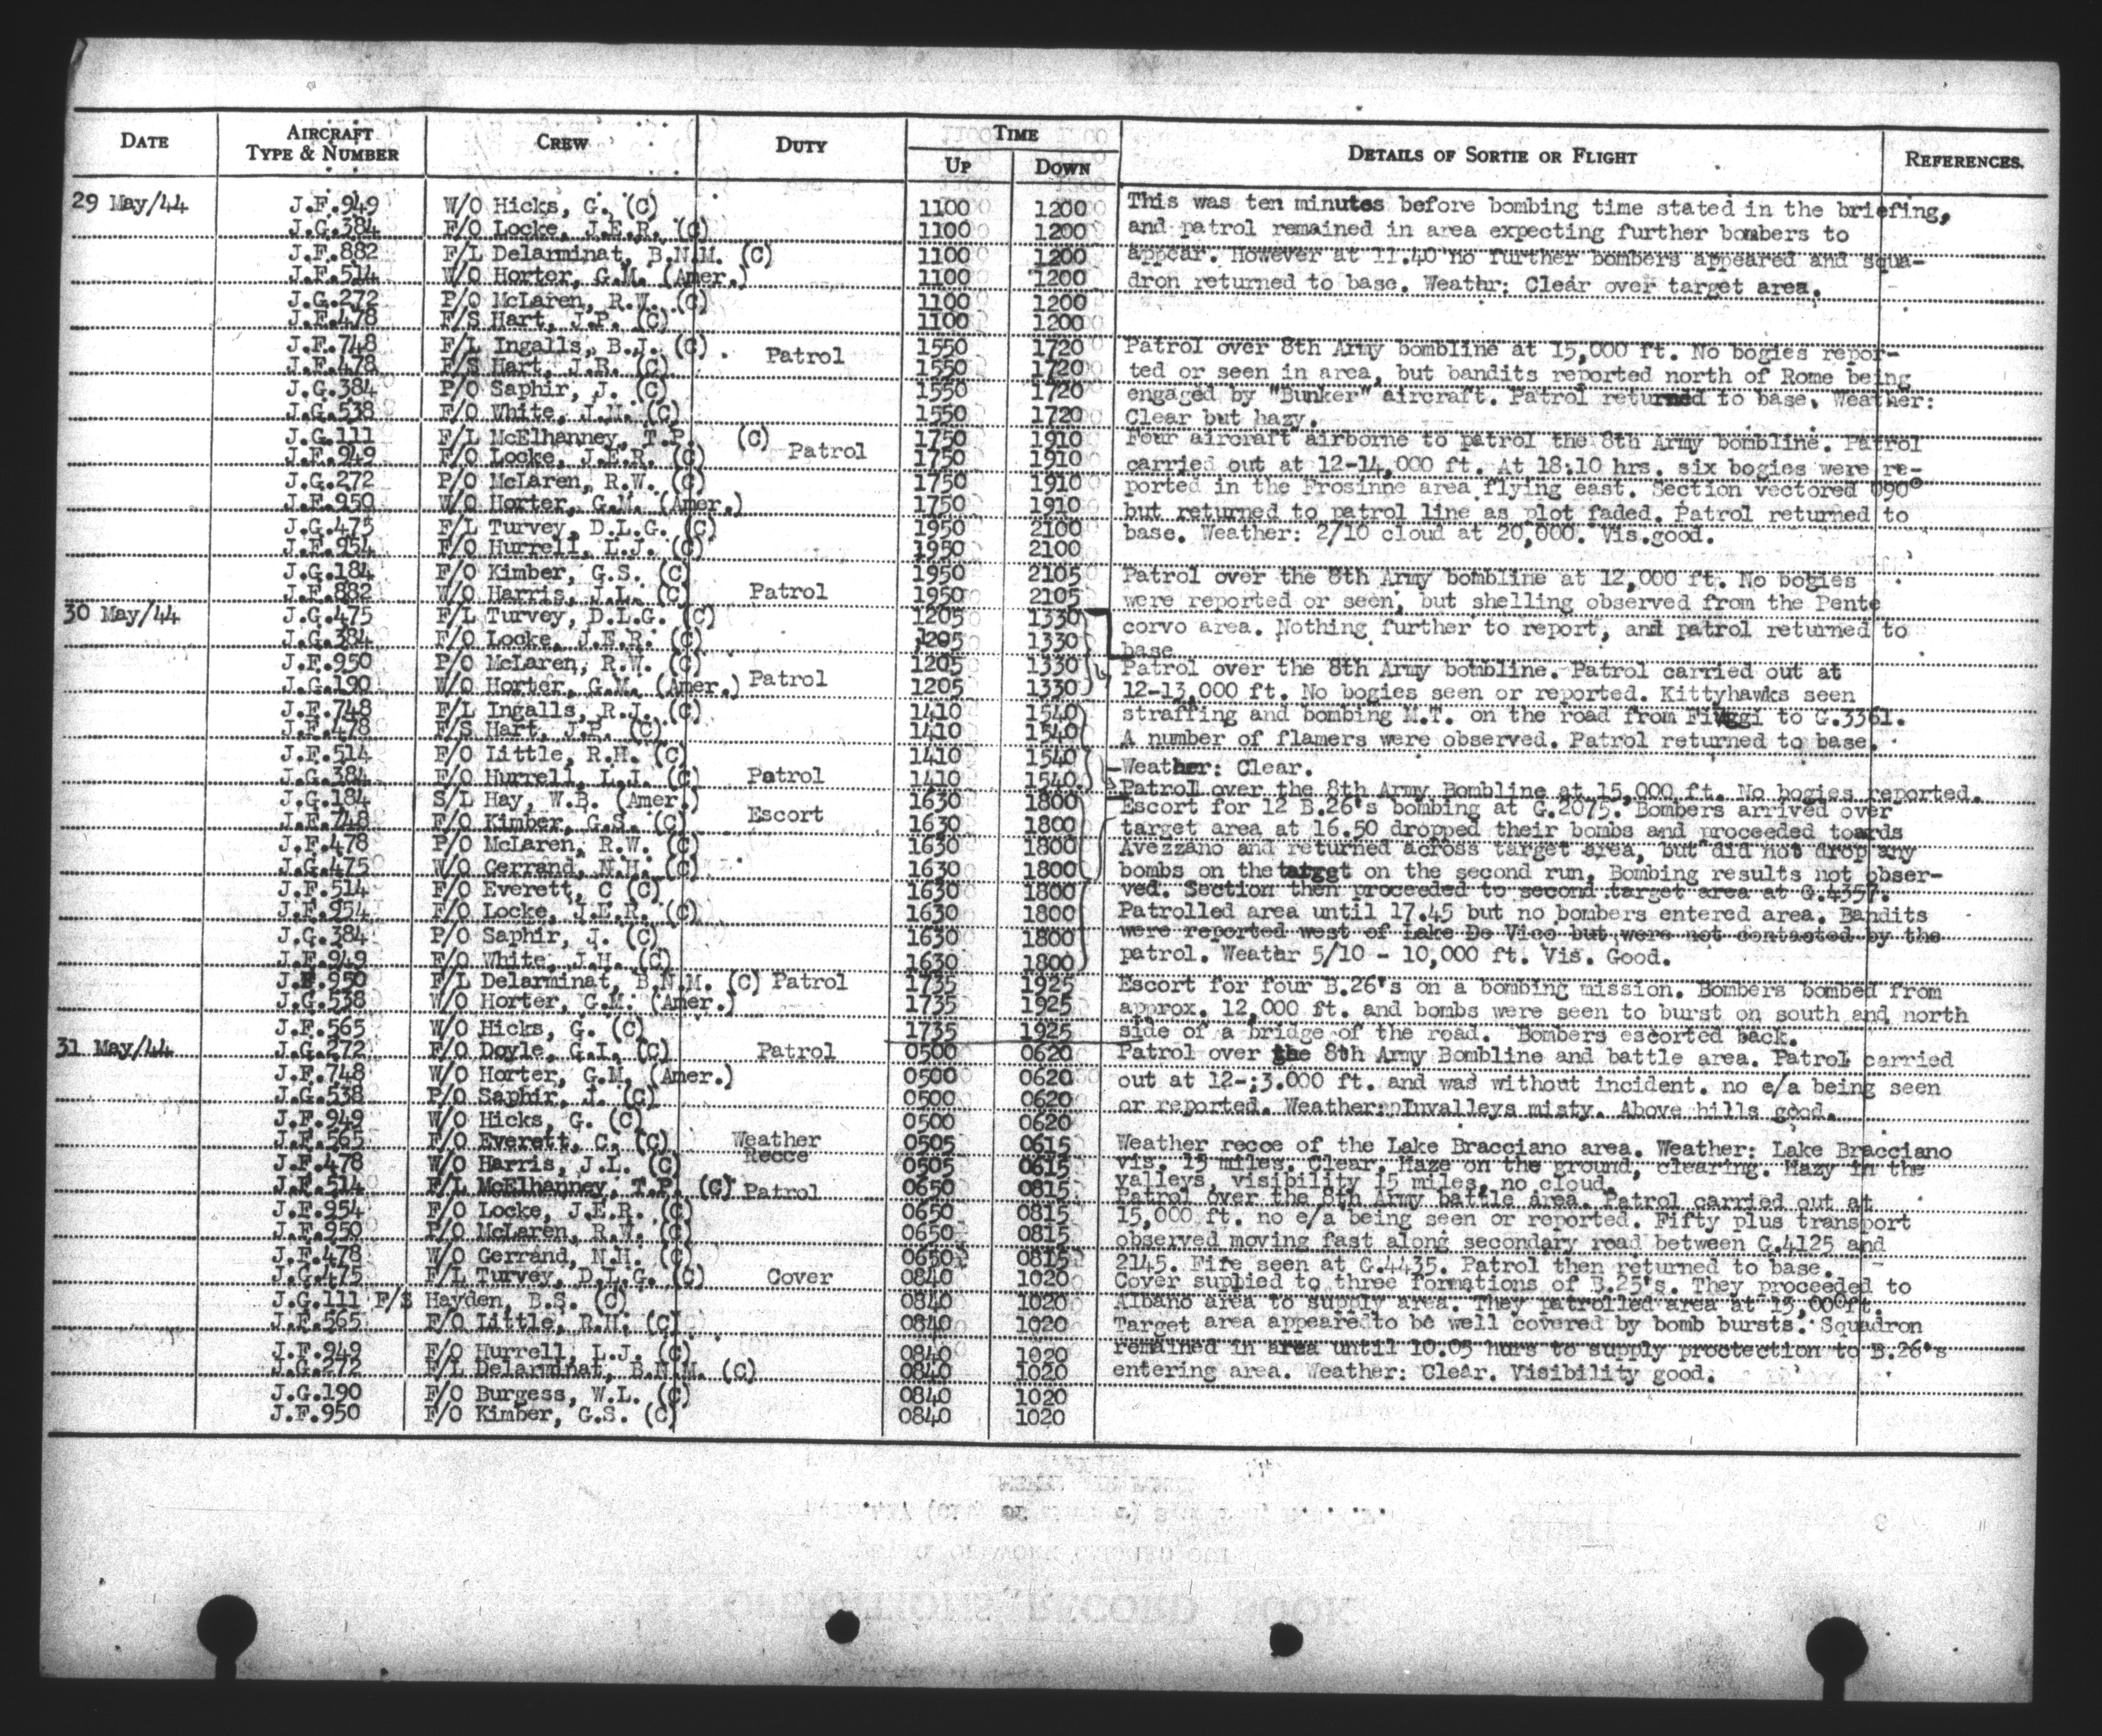 DATE AIRCRAFT TYPE & NUMBER CREW DUTY TIME UP DOWN DETAILS OF SORTIE OR FLIGHT REFERENCES.
29 May/44 J.F.949 W/O Hicks, G. (C) 1100 1200 This was ten minutes before bombing time stated in the briefing,
J.G.384 F/O Locke, J.E.R. (C) 1100 1200 and patrol remained in area expecting further bombers to
J.F.882 F/L Delarminat, B.N.M. (C) 1100 1200 appear. However at 11.40 no further bombers appeared and squa-
J.F.514 W/O Horter, G.M. (Amer.) 1100 1200 dron returned to base. Weathr: Clear over target area.
J.G.272 P/O McLaren, R.W. (C) 1100 1200
J.F.478 F/S Hart, J.P. (C) 1100 1200
J.F.748 F/L Ingalls, B.J. (C) Patrol 1550 1720 Patrol over 8th Army bombline at 15,000 ft. No bogies repor-
J.F.478 F/S Hart, J.R. (C) 1550 1720 ted or seen in area, but bandits reported north of Rome being
J.G.384 P/O Saphir, J. (C) 1550 1720 engaged by "Bunker" aircraft. Patrol returned to base. Weather:
J.G.538 F/O White, J.H. (C) 1550 1720 Clear but hazy.
J.G.111 F/L McElhanney, T.P. (C) Patrol 1750 1910 Four aircraft airborne to patrol the 8th Army bombline. Patrol
J.F.949 F/O Locke, J.E.R. (C) 1750 1910 carried out at 12-14,000 ft. At 18:10 hrs. six bogies were re-
J.G.272 P/O McLaren, R.W. (C) 1750 1910 ported in the Frosinne area flying east. Section vectored 090°
J.F.950 W/O Horter, G.M. (Amer.) 1750 1910 but returned to patrol line as plot faded. Patrol returned to
J.G.475 F/L Turvey, D.L.G. (C) 1950 2100 base. Weather: 2/10 cloud at 20,000. Vis.good.
J.F.954 F/O Hurrell, L.J. (C) 1950 2100
J.G.184 F/O Kimber, G.S. (C) 1950 2105 Patrol over the 8th Army bombline at 12,000 ft. No bogies
J.F.882 W/O Harris, J.L. (C) Patrol 1950 2105 were reported or seen, but shelling observed from the Pente
30 May/44 J.G.475 F/L Turvey, D.L.G. (C) 1205 1330 corvo area. Nothing further to report, and patrol returned to
J.G.384 F/O Locke, J.E.R. (C) 1205 1330 base
J.F.950 P/O McLaren, R.W. (C) 1205 1330 Patrol over the 8th Army bombline. Patrol carried out at
J.G.190 W/O Horter, G.M. (Amer.) Patrol 1205 1330 12-13,000 ft. No bogies seen or reported. Kittyhawks seen
J.F.748 F/L Ingalls, R.J. (C) 1410 1540 straffing and bombing M.T. on the road from Fiuggi to G.3361.
J.F.478 F/S Hart, J.P. (C) 1410 1540 A number of flamers were observed. Patrol returned to base.
J.F.514 F/O Little, R.H. (C) 1410 1540 Weather: Clear.
J.G.384 F/O Hurrell, L.I. (C) Patrol 1410 1540 Patrol over the 8th Army Bombline at 15,000 ft. No bogies reported.
J.G.184 S/L Hay, W.B. (Amer.) Escort 1630 1800 Escort for 12 B.26's bombing at G.2075. Bombers arrived over
J.F.748 F/O Kimber, G.S. (C) 1630 1800 target area at 16.50 dropped their bombs and proceeded toards
J.F.478 P/O McLaren, R.W. (C) 1630 1800 Avezzano and returned across target area, but did not drop any
J.G.475 W/O Gerrand, N.H. (C) 1630 1800 bombs on the target on the second run. Bombing results not obser-
J.F.514 F/O Everett, C (C) 1630 1800 ved. Section then proceeded to second target area at G.4357.
J.F.954 F/O Locke, J.E.R. (C) 1630 1800 Patrolled area until 17.45 but no bombers entered area. Bandits
J.G.384 P/O Saphir, J. (C) 1630 1800 were reported west of Lake De Vico but were not contacted by the
J.F.949 F/O White, J.H. (C) 1630 1800 patrol. Weathr 5/10 - 10,000 ft. Vis. Good.
J.F.950 F/L Delarminat, B.N.M. (C) Patrol 1735 1925 Escort for four B.26's on a bombing mission. Bombers bombed from
J.G.538 W/O Horter, G.M. (Amer.) 1735 1925 approx. 12,000 ft. and bombs were seen to burst on south and north
J.F.565 W/O Hicks, G. (C) 1735 1925 side of a bridge of the road. Bombers escorted back.
31 May/44 J.G.272 F/O Doyle, G.I. (C) Patrol 0500 0620 Patrol over the 8th Army Bombline and battle area. Patrol carried
J.F.748 W/O Horter, G.M. (Amer.) 0500 0620 out at 12-;3.000 ft. and was without incident. no e/a being seen
J.G.538 P/O Saphir, J. (C) 0500 0620 or reported. Weather: Invalleys misty. Above hills good.
J.F.949 W/O Hicks, G. (C) 0500 0620
J.F.565 F/O Everett, C. (C) Weather 0505 0615 Weather recce of the Lake Bracciano area. Weather: Lake Bracciano
J.F.478 W/O Harris, J.L. (C) Recce 0505 0615 vis. 15 miles. Clear. Haze on the ground, clearing. Hazy in the
J.F.514 F/L McElhanney, T.P. (C) Patrol 0650 0815 valleys, visibility 15 miles, no cloud.
Patrol over the 8th Army battle area. Patrol carried out at
J.F.954 F/O Locke, J.E.R. (C) 0650 0815 15,000 ft. no e/a being seen or reported. Fifty plus transport
J.F.950 P/O McLaren, R.W. (C) 0650 0815 observed moving fast along secondary road between G.4125 and
J.F.478 W/O Gerrand, N.H. (C) 0650 0815 2145. Fire seen at G.4435. Patrol then returned to base.
J.G.475 F/L Turvey, D.L.G. (C) Cover 0840 1020 Cover suplied to three formations of B.25's. They proceeded to
J.G.111 F/S Hayden, B.S. (C) 0840 1020 Albano area to supply area. They patrolled area at 15,000ft.
J.F.565 F/O Little, R.H. (C) 0840 1020 Target area appeared to be well covered by bomb bursts. Squadron
J.F.949 F/O Hurrell, L.J. (C) 0840 1020 remained in area until 10.05 hurs to supply proctection to B.26's
J.G.272 F/L Delarminat, B.N.M. (C) 0840 1020 entering area. Weather: Clear. Visibility good.
J.G.190 F/O Burgess, W.L. (C) 0840 1020
J.F.950 F/O Kimber, G.S. (C) 0840 1020